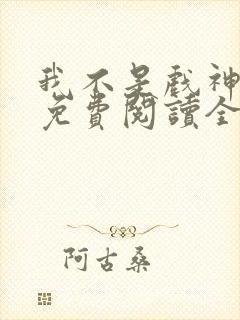 我不是戲神
免費閱讀全
阿古桑